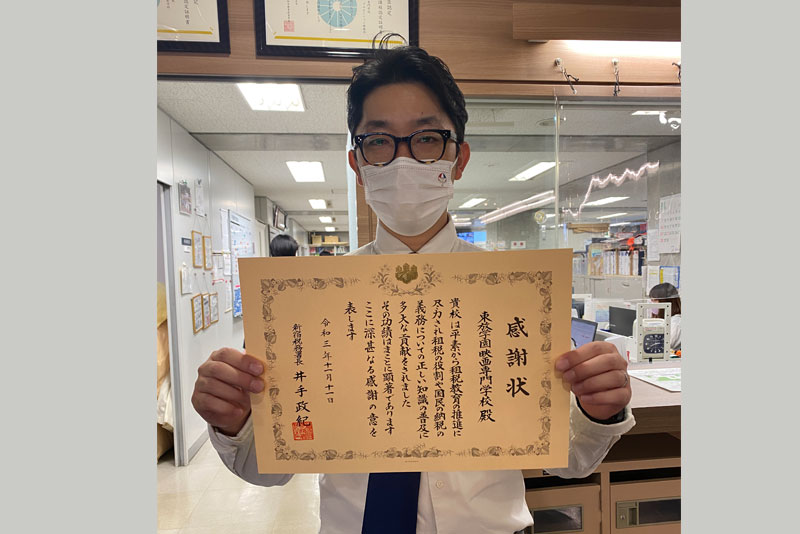 感謝状
東放学園映画専門学校 殿
貴校は平素から租税教育の推進に
尽力され租税の役割や国民の納税の
義務についての正しい知識の普及に
多大な貢献をされました
その功績はまことに顕著であります
ここに深甚なる感謝の意を
表します
令和三年十一月十一日
新宿税務署長 井手政紀